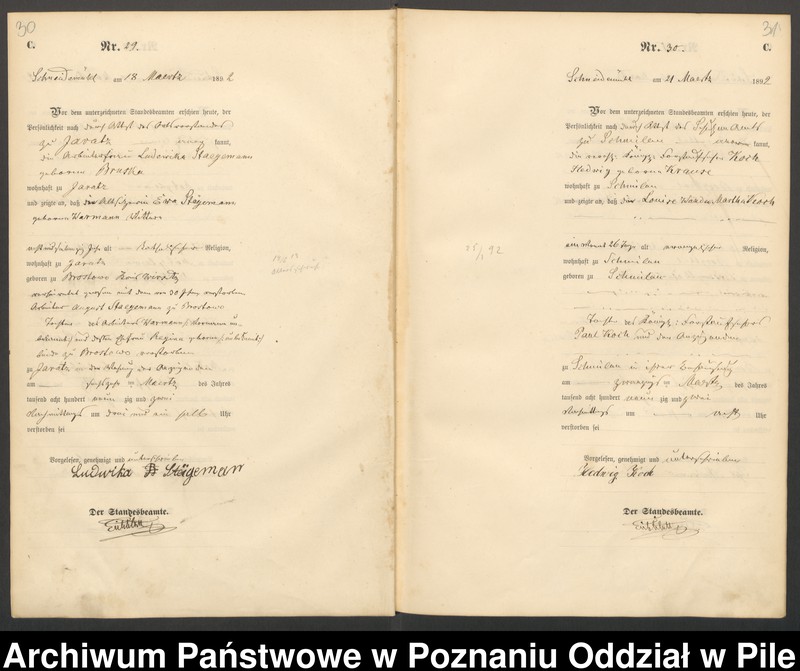 30
C.
Nr. 29.
Schneidemühl am 18 Maertz 1892
Vor dem unterzeichneten Standesbeamten erschien heute, der
Persönlichkeit nach durch Attest des
zu Jaratz kannt,
die Arbeiterfrau Ludowika Staegemann
geborene Bruska
wohnhaft zu Jaratz
und zeigte an, daß die Altsitzerin Ewa Stägemann
geborene Warmann
Jahr alt Religion,
wohnhaft zu Jaratz
geboren zu Brostowo Kreis Wirsitz
verheirathet gewesen mit dem vor 30 Jahren verstorbenen
Arbeiter August Staegemann zu Brostowo
Tochter des Arbeiters Warmann
und dessen Ehefrau Regina geborene
beide zu Brostowo verstorben
zu Jaratz in der Wohnung der Anzeigenden
am Maertz des Jahres
tausend acht hundert neun zig und zwei
Nachmittags um drei und ein halb Uhr
verstorben sei
Vorgelesen, genehmigt und unterschrieben
Ludwika Stägeman
Der Standesbeamte.
31
Nr. 30. C.
Schneidemühl am 21 Maertz 1892
Vor dem unterzeichneten Standesbeamten erschien heute, der
Persönlichkeit nach durch Attest des Schulzen Amts
zu Schmilau kannt,
die Koch
Hedwig geborene Krause
wohnhaft zu Schmilau
und zeigte an, daß die Louise Wanda Martha Koch
ein Monat 26 Tage alt evangelischer Religion,
wohnhaft zu Schmilau
geboren zu Schmilau
25/1 92
Tochter des Königl: Forstaufsehers
Paul Koch und der Anzeigenden
zu Schmilau in ihrer Behausung
am zwanzigsten Maertz des Jahres
tausend acht hundert neun zig und zwei
Nachmittags um acht Uhr
verstorben sei
Vorgelesen, genehmigt und unterschrieben
Hedwig Koch
Der Standesbeamte.
Archiwum Państwowe w Poznaniu Oddział w Pile